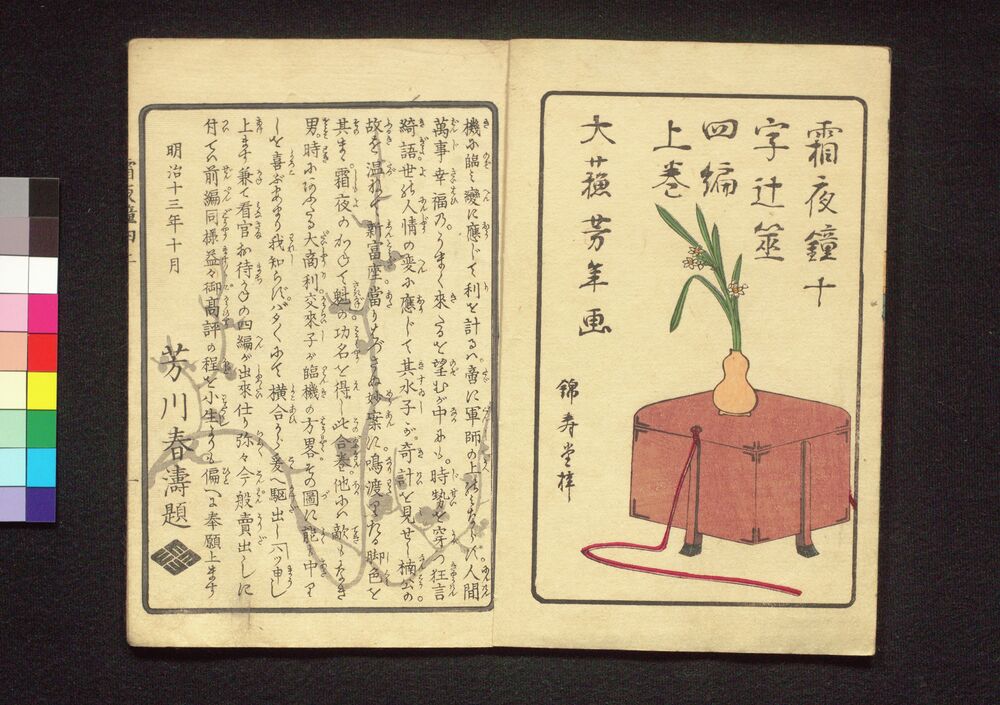 霜夜鐘十
字辻筮
四編
上巻
大蘓芳年画
錦寿堂梓
機に臨み変に應じて利を計るハ啻に軍師の上のミならバ人間
萬事幸福の。うまく來たるを望むが中にも。時勢を穿つ狂言
綺語世の人情の変に應じて其水子が奇計を見せし楠公の
故を温ねて新富座當り
妙案に。鳴渡りたる脚色を
其まゝ霜夜のかねて魁の功名を得し此合巻他にハ敵もなき
男。時にあふたる大商利交來子が臨機の方畧その圖に
中り
しを喜ぶあまり我知らバ
横合から爰へ駆出し一ツ申し
上ます兼て看官お待
の四編が出來仕り弥々今般賣出しに
付てハ前編同様益々御髙評の程を小生よりも偏へに奉願上ます
明治十三年十月
芳川春濤題
霜夜鐘四上